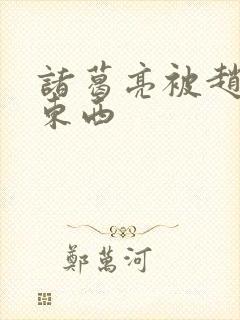 諸葛亮被趙
東西
鄭萬河